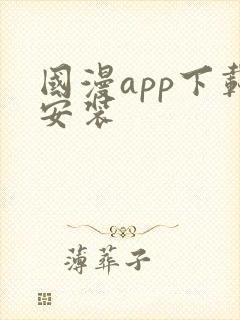 國漫app下載
安裝
薄葬子